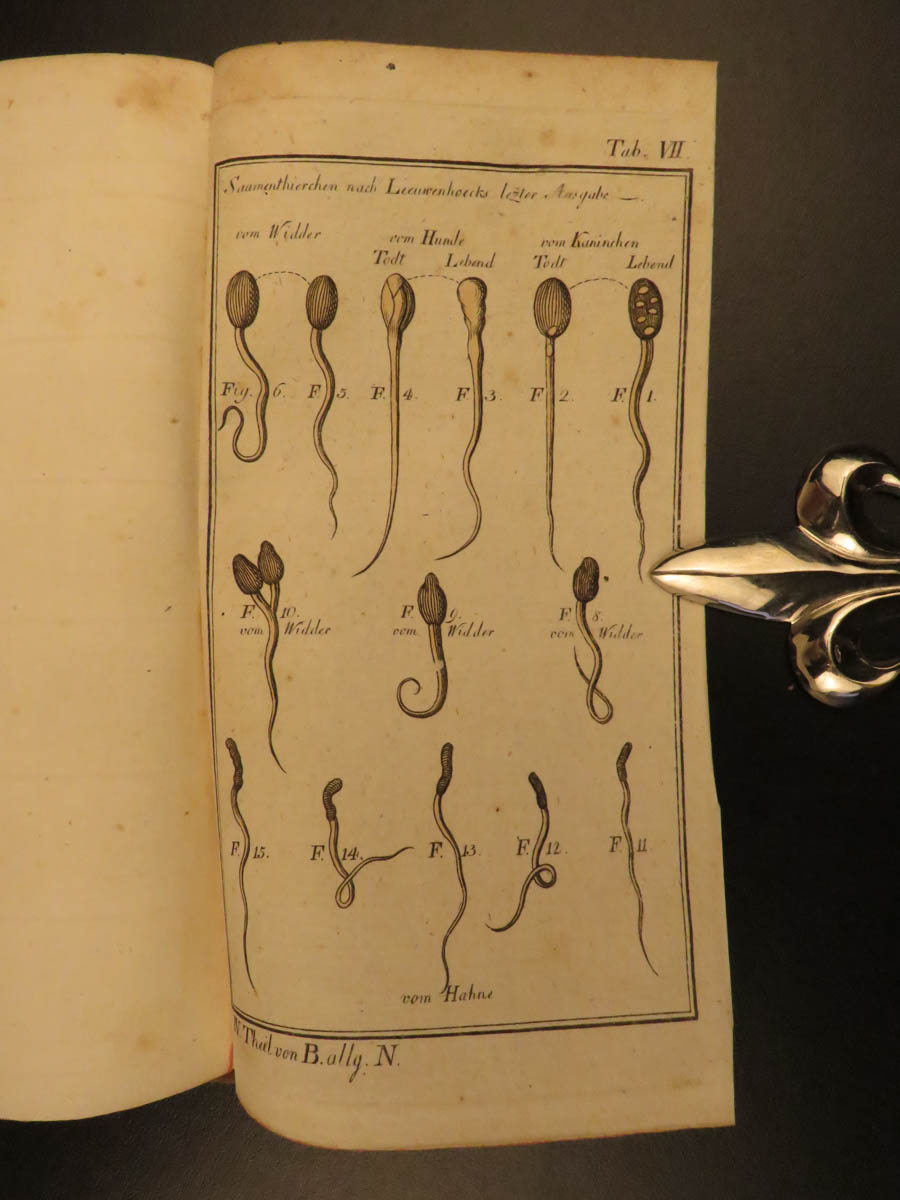 Tab. VII.
Saamenthierchen nach Leeuwenhoecks lezter Ausgabe
vom Widder vom Hunde vom Kaninchen
Todt Lebend Todt Lebend
Fig. 6. F. 5. F. 4. F. 3. F. 2. F. 1.
F. 10. F. 9. F. 8.
vom Widder vom Widder vom Widder
F. 15. F. 14. F. 13. F. 12. F. 11.
vom Hahne
Theil von B. allg. N.